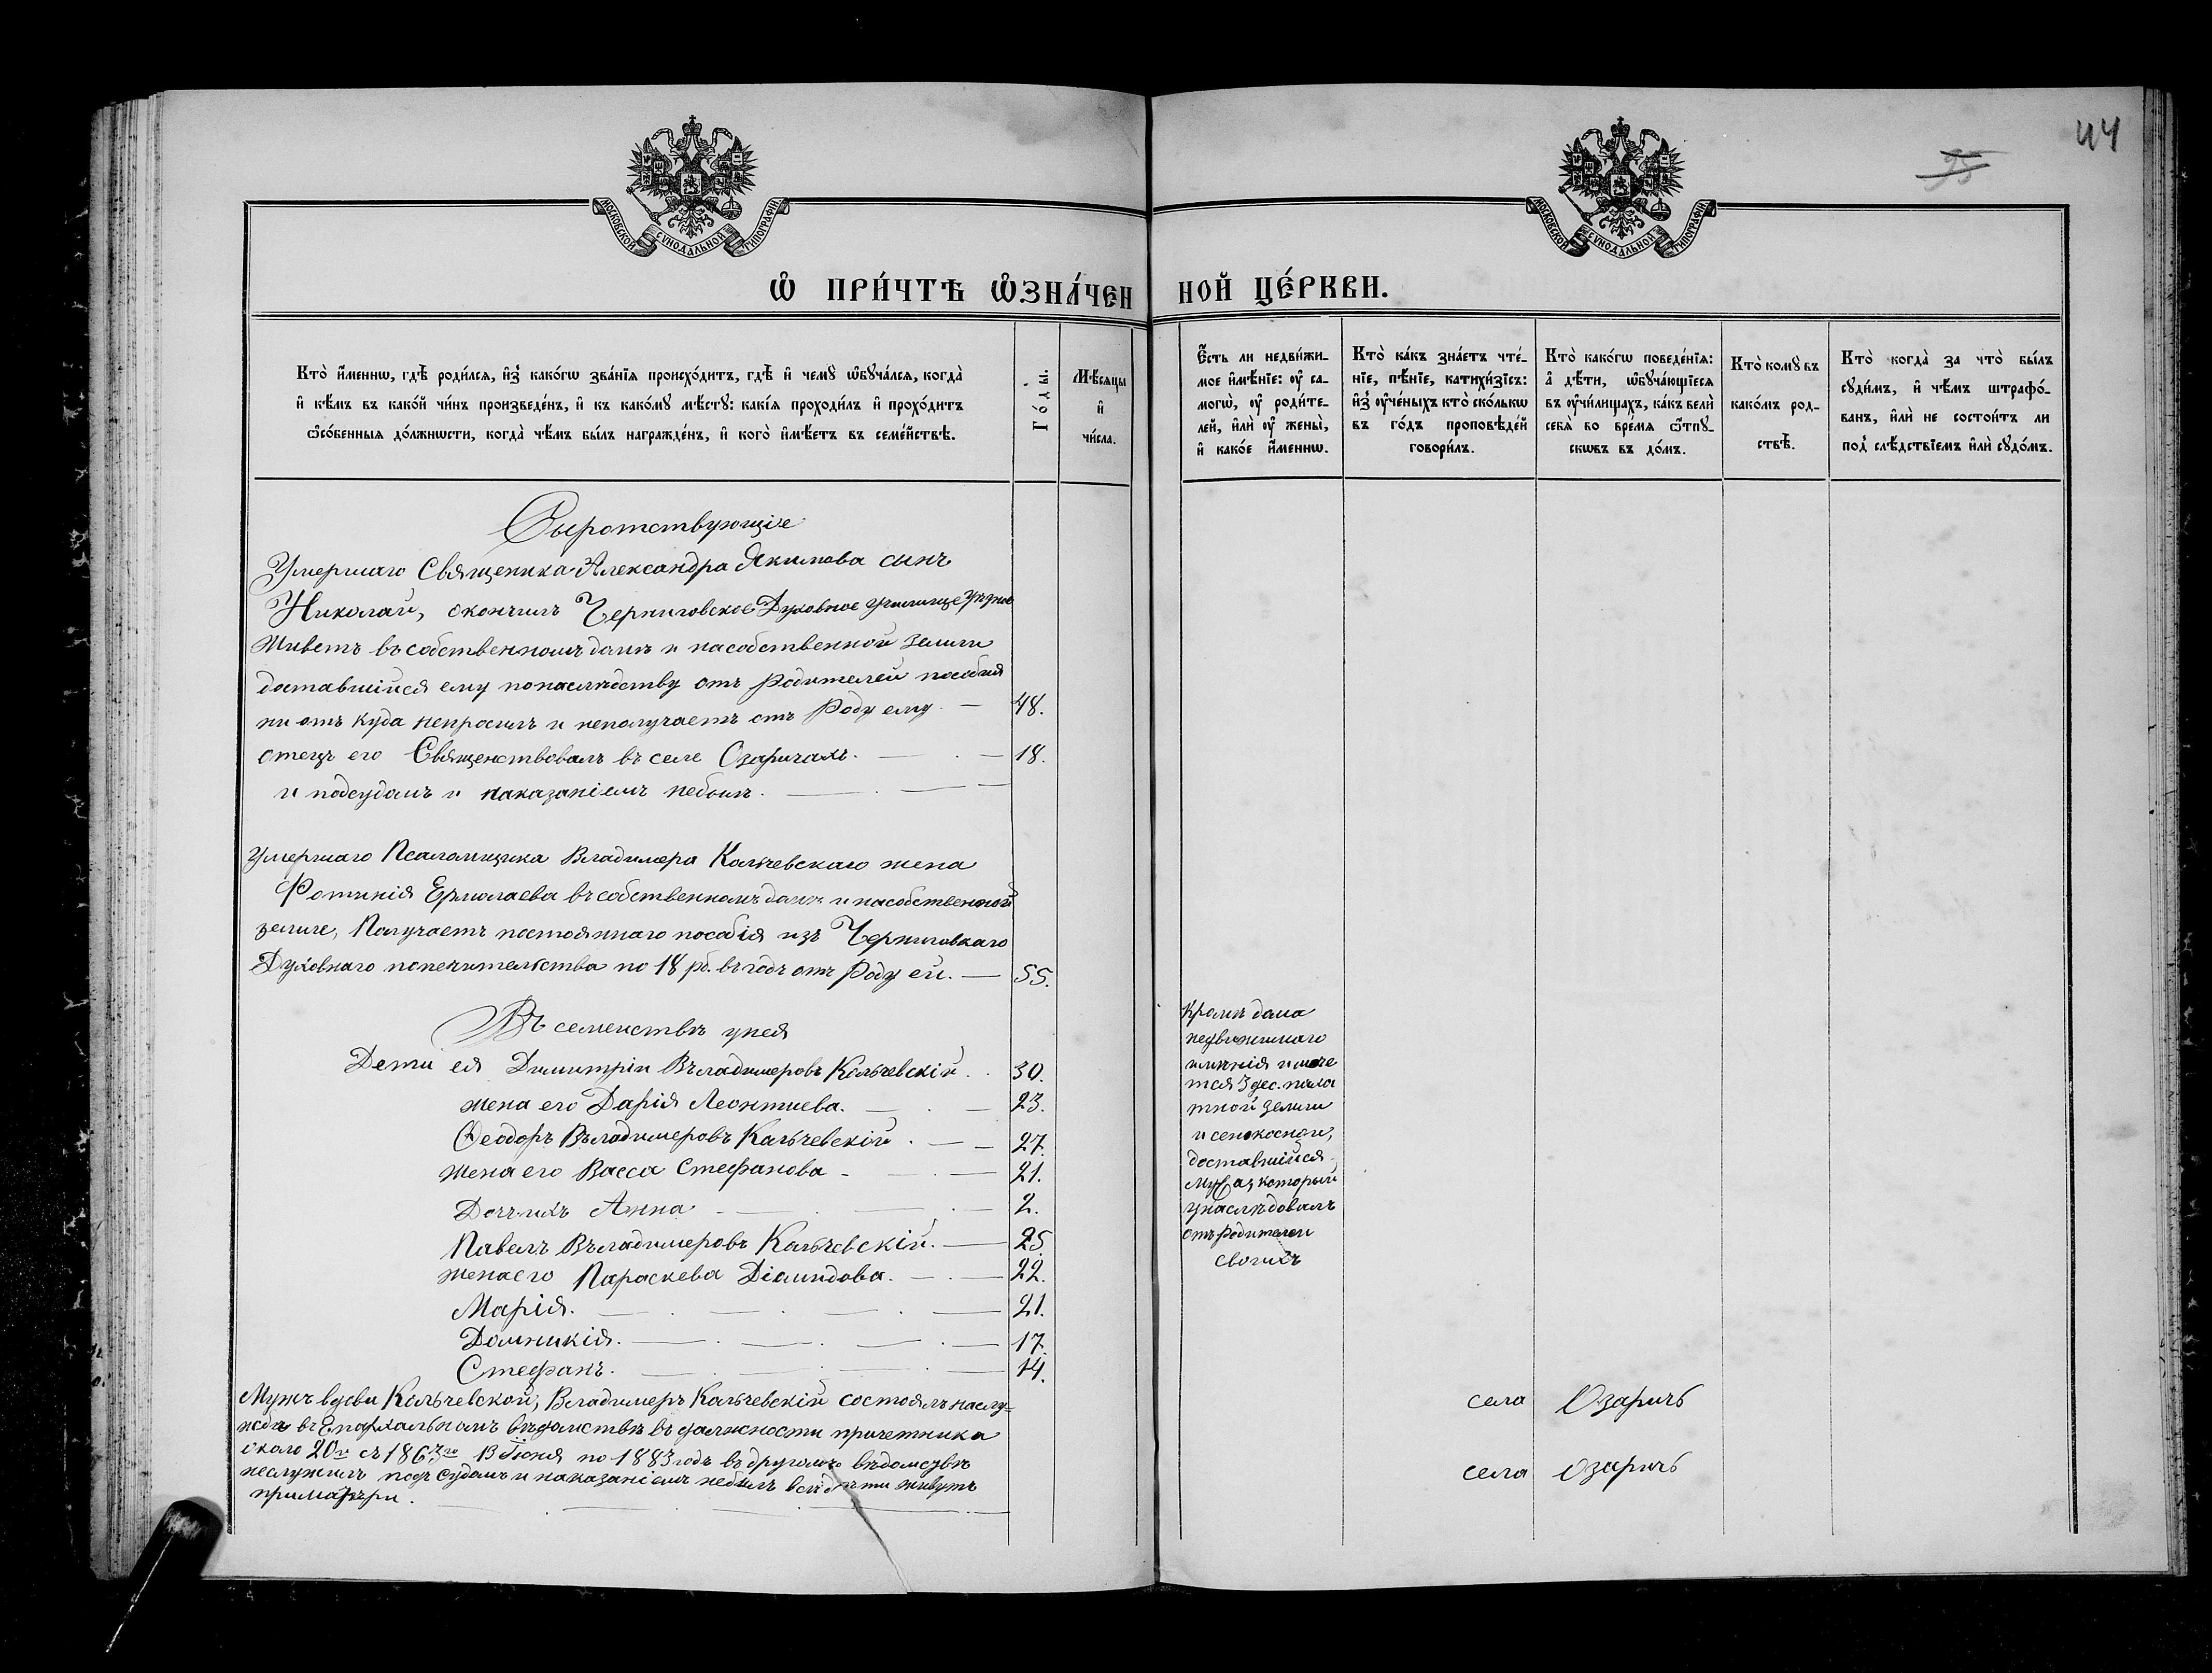 44
95
МОСКОВСКОЙ СѴНОДАЛЬНОЙ ТИПОГРАФІИ
МОСКОВСКОЙ СѴНОДАЛЬНОЙ ТИПОГРАФІИ
Ѡ ПРИ́ЧТѢ ѠЗНА́ЧЕННОЙ ЦЕ́РКВИ.
Кто̀ и҆́меннѡ, гдѣ̀ роди́лсѧ, и҆з̾ како́гѡ зва́нїѧ происхо́дитъ, гдѣ̀ и҆ чемꙋ̀ ѡ҆бꙋча́лсѧ, когда̀
и҆ кѣ́мъ въ како́й чи́нъ произведе́нъ, и҆ къ како́мꙋ мѣ́стꙋ: какі́ѧ проходи́лъ и҆ прохо́дитъ
ѻ҆со́бенныѧ до́лжнѡсти, когда̀ чѣ́мъ бы́лъ награжде́нъ, и҆ кого̀ и҆мѣ́етъ въ семе́йствѣ.
Го́ды.
Мѣ́сѧцы
и҆
чи́сла.
Є҆́сть ли недви́жи-
мое и҆мѣ́нїе: ᲂу҆ са-
могѡ̀, ᲂу҆ роди́те-
лей, и҆лѝ ᲂу҆ жены̀,
и҆ како́е и҆́меннѡ.
Кто̀ ка́къ зна́етъ чте́-
нїе, пѣ́нїе, катихи́зїсъ:
и҆з̾ ᲂу҆че́ныхъ кто̀ ско́лькѡ
въ го́дъ проповѣ́дей
говори́лъ.
Кто̀ како́гѡ поведе́нїѧ:
а҆ дѣ́ти, ѡ҆бꙋча́ющїесѧ
въ ᲂу҆чи́лищахъ, ка́къ велѝ
себѧ̀ во вре́мѧ ѿпꙋ-
скѡвъ въ до́мъ.
Кто̀ комꙋ̀ въ
како́мъ род-
ствѣ̀.
Кто̀ когда̀ за что̀ бы́лъ
сꙋди́мъ, и҆ чѣ́мъ штрафо́-
ванъ, и҆лѝ не состои́тъ ли
под̾ слѣ́дствїемъ и҆лѝ сꙋдо́мъ.
Сыротствующіе
Умершаго Священика Александра Якимова сынъ
Николай, окончилъ Черниговское Духовное училище
Живетъ въ собственномъ домѣ и на собственной земли
доставшийся ему понаслѣдству отъ Родителей пособия
ни отъ куда непросилъ и неполучаетъ отъ Роду ему. — 48.
отецъ его Священствовалъ въ селе Озаричахъ. — 18.
и подсудомъ и наказаніемъ небылъ.
Умершаго Псаломщика Владимера Кольчевскаго жена
Фотинія Ермолаева въ собственномъ домѣ и насобственной
земле, Получаетъ постояннаго пособія изъ Черниговкаго
Духовнаго попечительства по 18 рб. въ годъ отъ Роду ей. — 55.
Въ семействѣ унея
Дети ея Димитріи Въладимеровъ Кольчевскій. 30.
жена его Дарія Леонтиева. — 23.
Ѳеодоръ Въладимеровъ Кальчевскій. — 27.
Жена его Васса Стефанова — 21.
Дочь ихъ Анна — 2.
Павелъ Въладимеровъ Кальчевскій. — 25.
женаего Параскева Діомидова. — 22.
Марія. — 21.
Домникія. — 17.
Стефанъ. — 14.
Мужъ вдовы Кольчевской, Владимеръ Кальчевскій состоялъ наслу=
жбѣ въ Епархальномъ вѣдомствѣ въ должности причетника
около 20ти съ 1863го 13 Іюня по 1883 годъ въ другомъ вѣдомсувѣ
неслужилъ подъ судомъ и наказаніемъ небылъ всѣ дѣти живутъ
приматри.
Кромѣ дома
недвижимаго
имѣнія имее
тся 3 дес. пахо
тной земли
и сенокосной,
доставшийся
мужа, который
унаслѣдовалъ
отъ родителей
своихъ
села Озаричъ
села Озаричъ